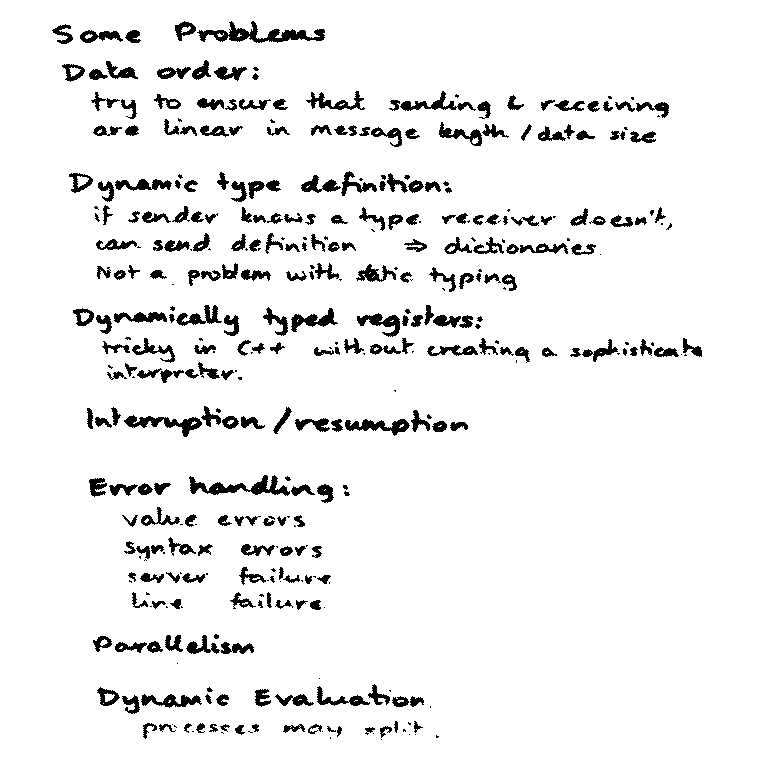 Some Problems
Data order:
try to ensure that sending & receiving
are linear in message length / data size
Dynamic type definition:
if sender knows a type receiver doesn't,
can send definition ⇒ dictionaries
Not a problem with static typing
Dynamically typed registers:
tricky in C++ without creating a sophisticate
interpreter.
Interruption / resumption
Error handling:
value errors
syntax errors
server failure
line failure
Parallelism
Dynamic Evaluation
processes may split.